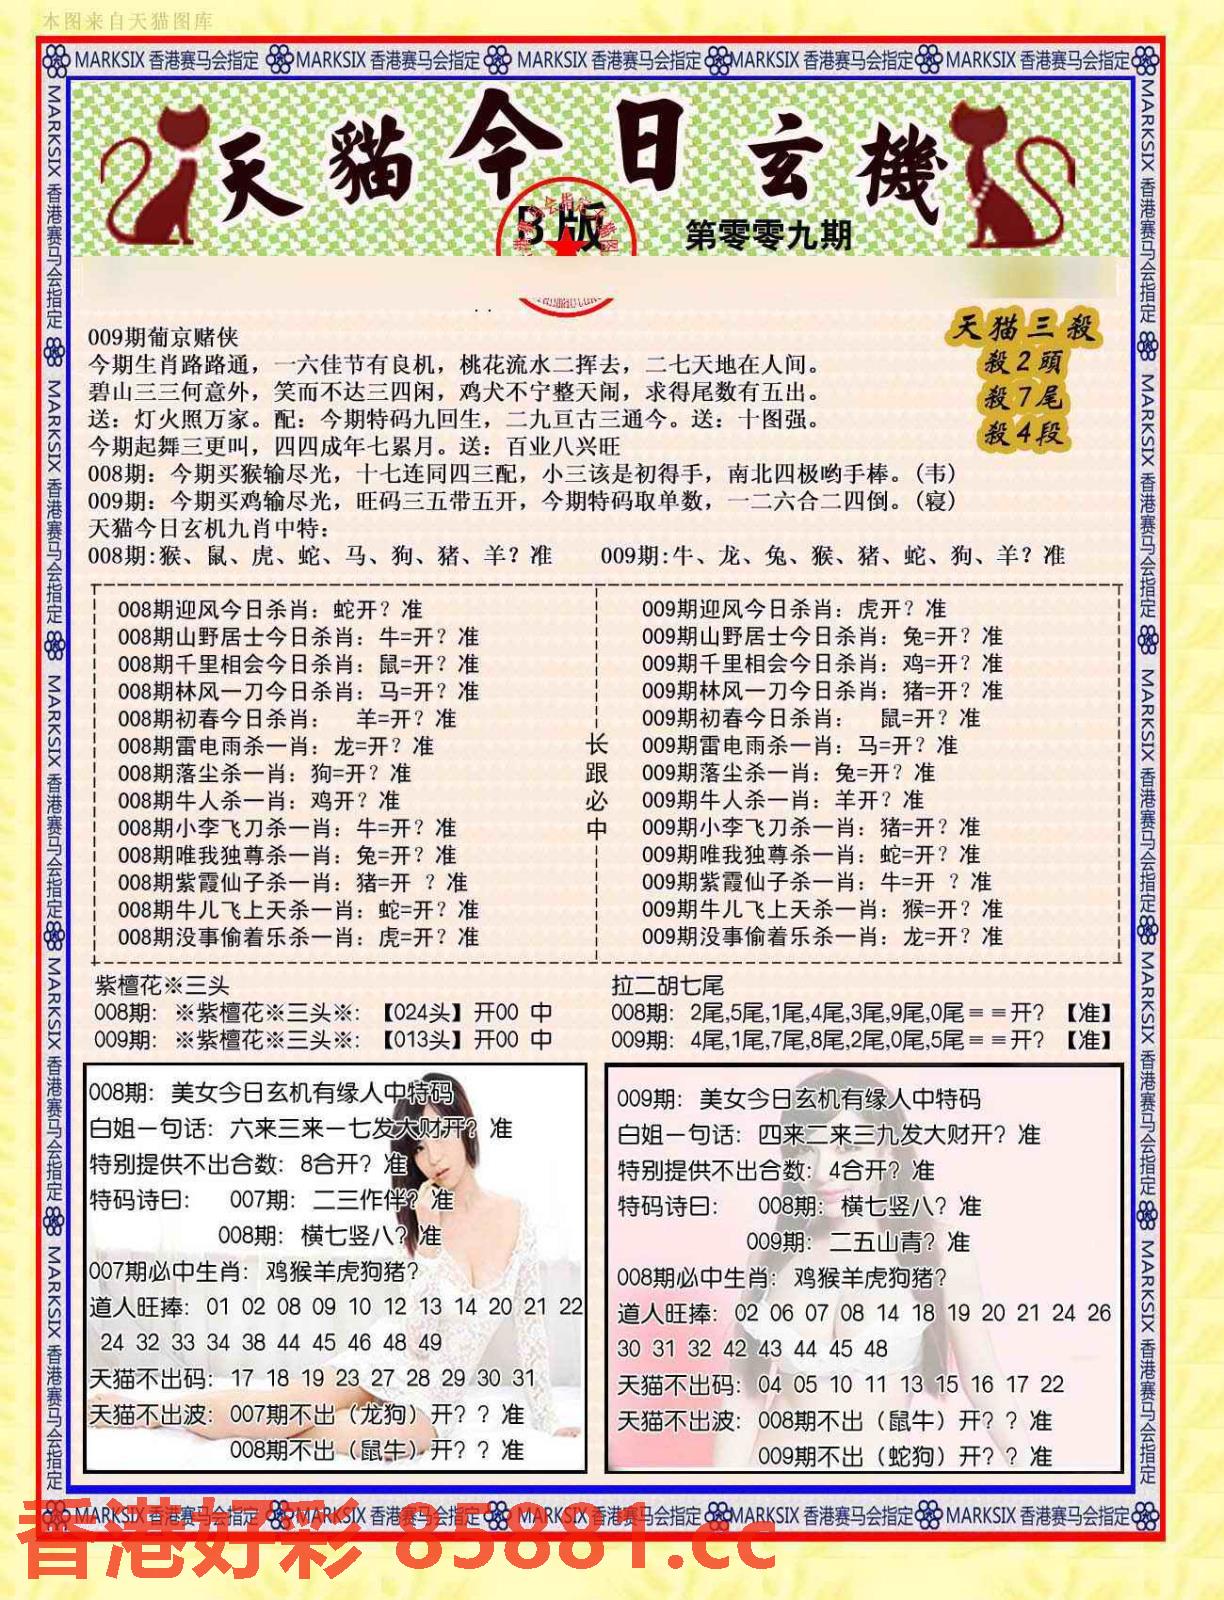 本图来自天猫图库
MARKSIX 香港赛马会指定 MARKSIX 香港赛马会指定 MARKSIX 香港赛马会指定 MARKSIX 香港赛马会指定 MARKSIX 香港赛马会指定
MARKSIX 香港赛马会指定 MARKSIX 香港赛马会指定 MARKSIX 香港赛马会指定 MARKSIX 香港赛马会指定 MARKSIX 香港赛马会指定
天貓今日玄機
B版
第零零九期
天猫三殺
殺2頭
殺7尾
殺4段
009期葡京赌侠
今期生肖路路通，一六佳节有良机，桃花流水二挥去，二七天地在人间。
碧山三三何意外，笑而不达三四闲，鸡犬不宁整天闹，求得尾数有五出。
送：灯火照万家。配：今期特码九回生，二九亘古三通今。送：十图强。
今期起舞三更叫，四四成年七累月。送：百业八兴旺
008期：今期买猴输尽光，十七连同四三配，小三该是初得手，南北四极哟手棒。(韦)
009期：今期买鸡输尽光，旺码三五带五开，今期特码取单数，一二六合二四倒。(寝)
天猫今日玄机九肖中特：
008期:猴、鼠、虎、蛇、马、狗、猪、羊？准 009期:牛、龙、兔、猴、猪、蛇、狗、羊？准
008期迎风今日杀肖：蛇开？准
008期山野居士今日杀肖：牛=开？准
008期千里相会今日杀肖：鼠=开？准
008期林风一刀今日杀肖：马=开？准
008期初春今日杀肖： 羊=开？准
008期雷电雨杀一肖：龙=开？准
008期落尘杀一肖：狗=开？准
008期牛人杀一肖：鸡开？准
008期小李飞刀杀一肖：牛=开？准
008期唯我独尊杀一肖：兔=开？准
008期紫霞仙子杀一肖：猪=开 ？准
008期牛儿飞上天杀一肖：蛇=开？准
008期没事偷着乐杀一肖：虎=开？准
长跟必中
009期迎风今日杀肖：虎开？准
009期山野居士今日杀肖：兔=开？准
009期千里相会今日杀肖：鸡=开？准
009期林风一刀今日杀肖：猪=开？准
009期初春今日杀肖： 鼠=开？准
009期雷电雨杀一肖：马=开？准
009期落尘杀一肖：兔=开？准
009期牛人杀一肖：羊开？准
009期小李飞刀杀一肖：猪=开？准
009期唯我独尊杀一肖：蛇=开？准
009期紫霞仙子杀一肖：牛=开 ？准
009期牛儿飞上天杀一肖：猴=开？准
009期没事偷着乐杀一肖：龙=开？准
紫檀花※三头
008期：※紫檀花※三头※：【024头】开00 中
009期：※紫檀花※三头※：【013头】开00 中
拉二胡七尾
008期：2尾,5尾,1尾,4尾,3尾,9尾,0尾＝＝开？【准】
009期：4尾,1尾,7尾,8尾,2尾,0尾,5尾＝＝开？【准】
008期：美女今日玄机有缘人中特码
白姐一句话：六来三来一七发大财开？准
特别提供不出合数：8合开？准
特码诗曰： 007期：二三作伴？准
008期：横七竖八？准
007期必中生肖：鸡猴羊虎狗猪？
道人旺捧：01 02 08 09 10 12 13 14 20 21 22
24 32 33 34 38 44 45 46 48 49
天猫不出码：17 18 19 23 27 28 29 30 31
天猫不出波：007期不出（龙狗）开？？准
008期不出（鼠牛）开？？准
009期：美女今日玄机有缘人中特码
白姐一句话：四来二来三九发大财开？准
特别提供不出合数：4合开？准
特码诗曰： 008期：横七竖八？准
009期：二五山青？准
008期必中生肖：鸡猴羊虎狗猪？
道人旺捧：02 06 07 08 14 18 19 20 21 24 26
30 31 32 42 43 44 45 48
天猫不出码：04 05 10 11 13 15 16 17 22
天猫不出波：008期不出（鼠牛）开？？准
009期不出（蛇狗）开？？准
MARKSIX 香港赛马会指定 MARKSIX 香港赛马会指定 MARKSIX 香港赛马会指定 MARKSIX 香港赛马会指定 MARKSIX 香港赛马会指定
MARKSIX 香港赛马会指定 MARKSIX 香港赛马会指定 MARKSIX 香港赛马会指定 MARKSIX 香港赛马会指定 MARKSIX 香港赛马会指定
香港好彩 85881.cc